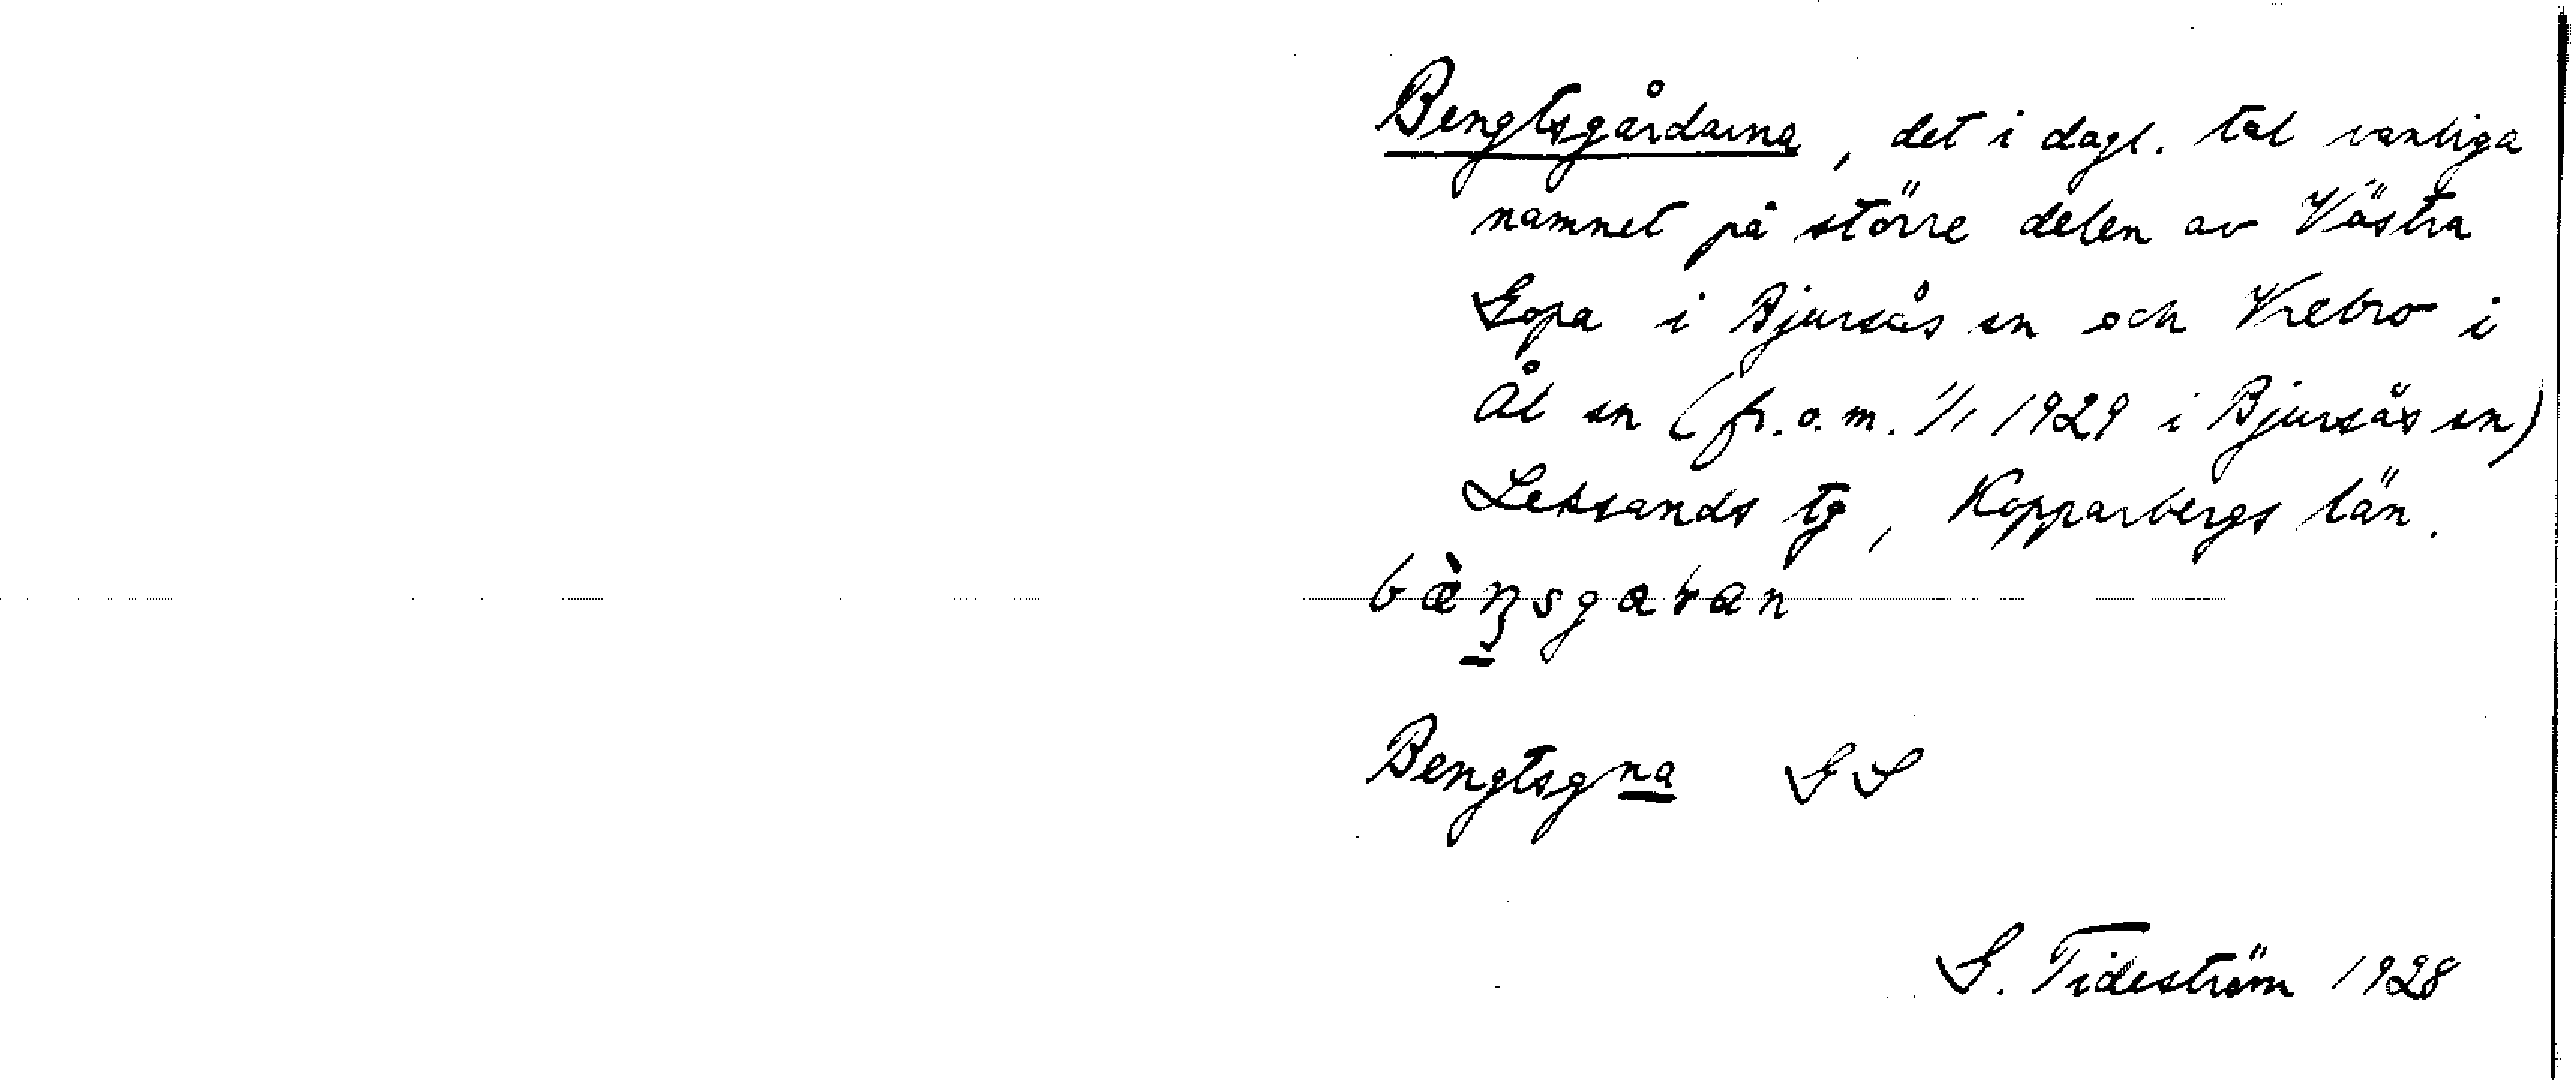 Bengtsgårdarna, det i dagl. tal vanliga
namnet på större delen av Västra
Gopa i Bjursås sn och Vretbro i
Ål sn (fr.o.m. 1/1 1929 i Bjursås sn)
Leksands tg, Kopparbergs län.
Bengtsgna GS
G. Tideström 1928